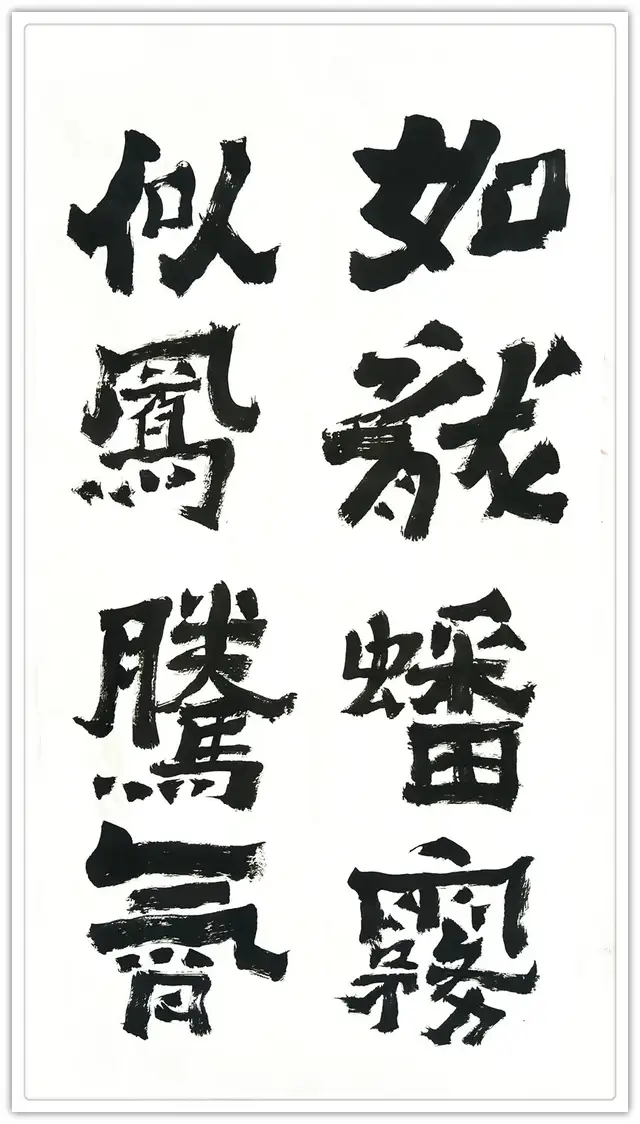 如龍蟠霧
似鳳騰